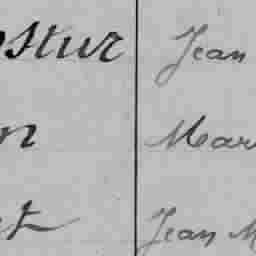 stur Jean
n Mar
et Jean M